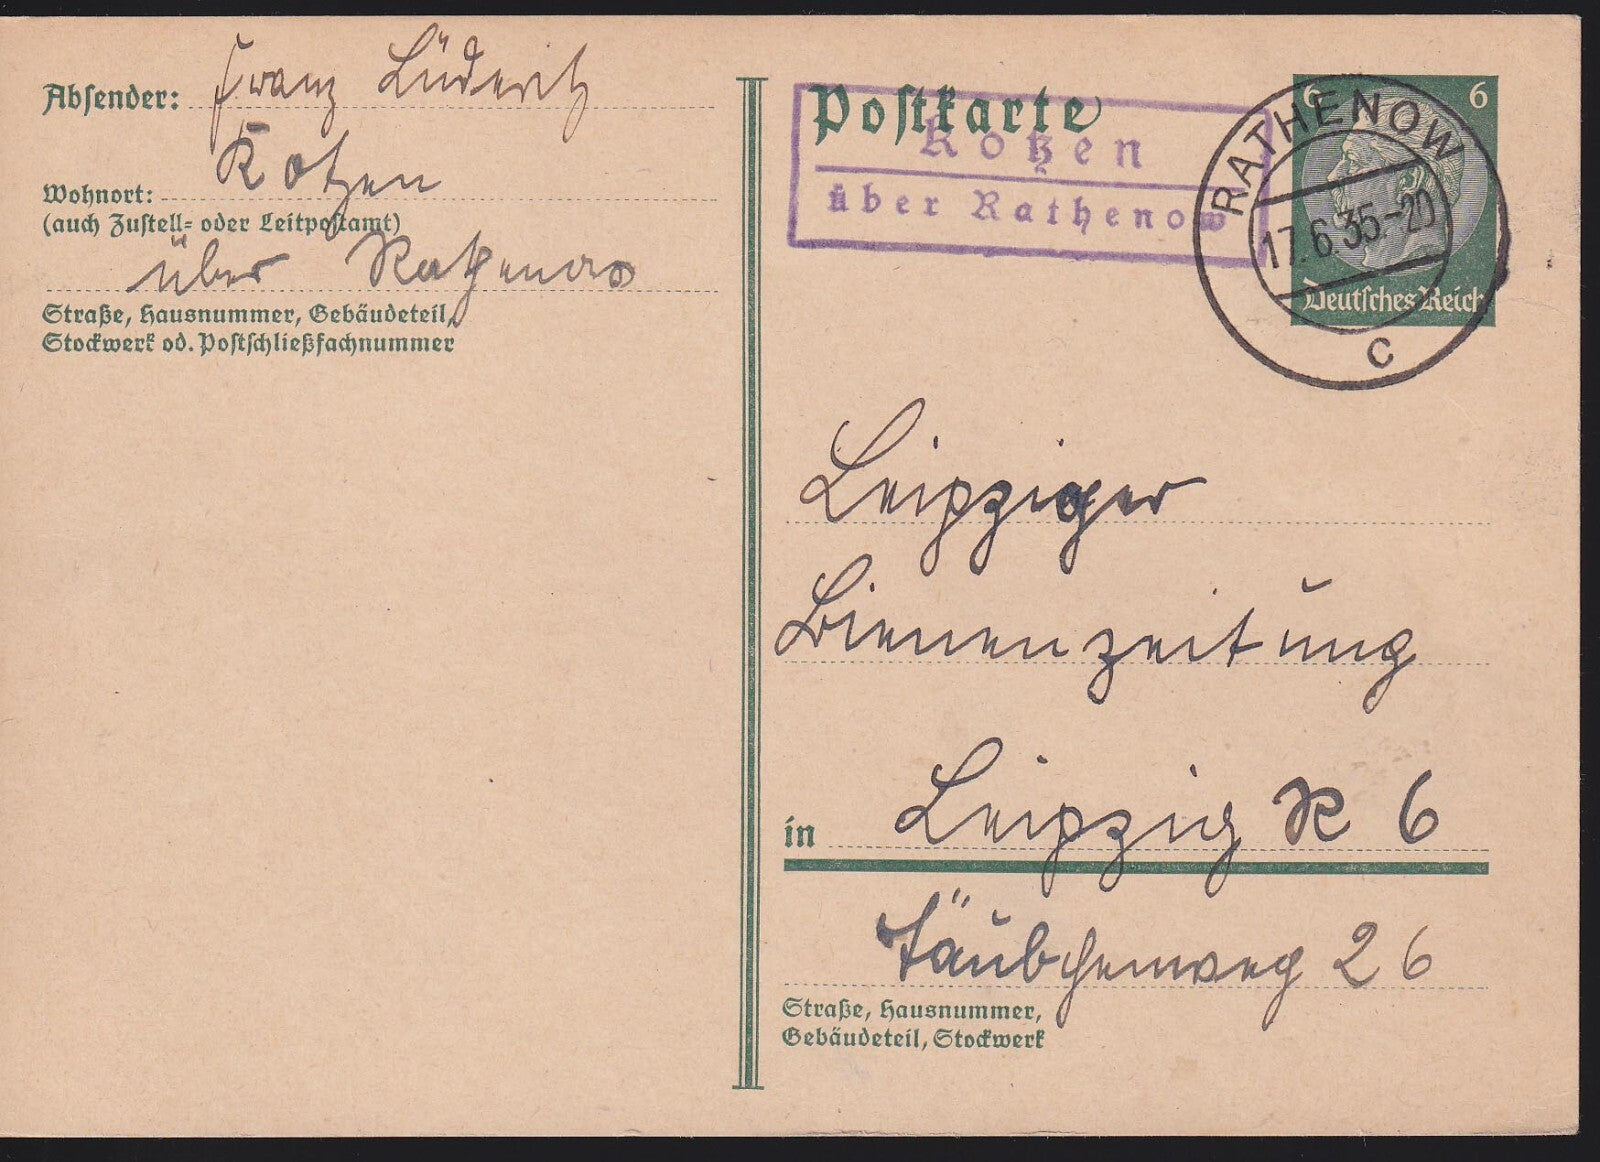 Absender: Franz Lüderitz
Kotzen
Wohnort:
(auch Zustell- oder Leitpostamt)
über Rathenow
Straße, Hausnummer, Gebäudeteil,
Stockwerk od. Postschließfachnummer
Postkarte
Kotzen
über Rathenow
RATHENOW
17.6.35-20
c
6 6
Deutsches Reich
Leipziger
Bienenzeitung
in Leipzig R 6
Täubchenweg 26
Straße, Hausnummer,
Gebäudeteil, Stockwerk